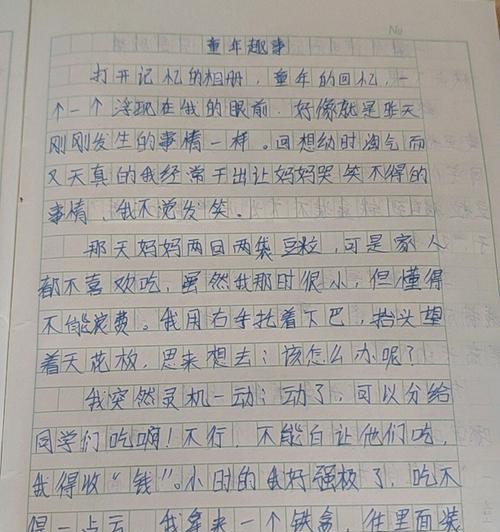 No
童年趣事
打开记忆的相册,童年的回忆,一
个一个浮现在我的眼前.好像就是昨天
刚刚发生的事情一样。回想幼时淘气而
又天真的我经常干出让妈妈哭笑不得的
事情,我不觉发笑。
那天妈妈两日两袋豆粒,可是家人
都不喜欢吃,虽然我那时很小,但懂得
不能浪费。我用右手扎着下巴,抬头望
着天花板,思来想去:该怎么办呢?
我突然灵机一动:动了,可以分给
同学们吃啊!不行,不能白让他们吃,
我得收“钱”。小时的我好强极了,吃不
得一点亏.我拿来一个铁盒,往里面装